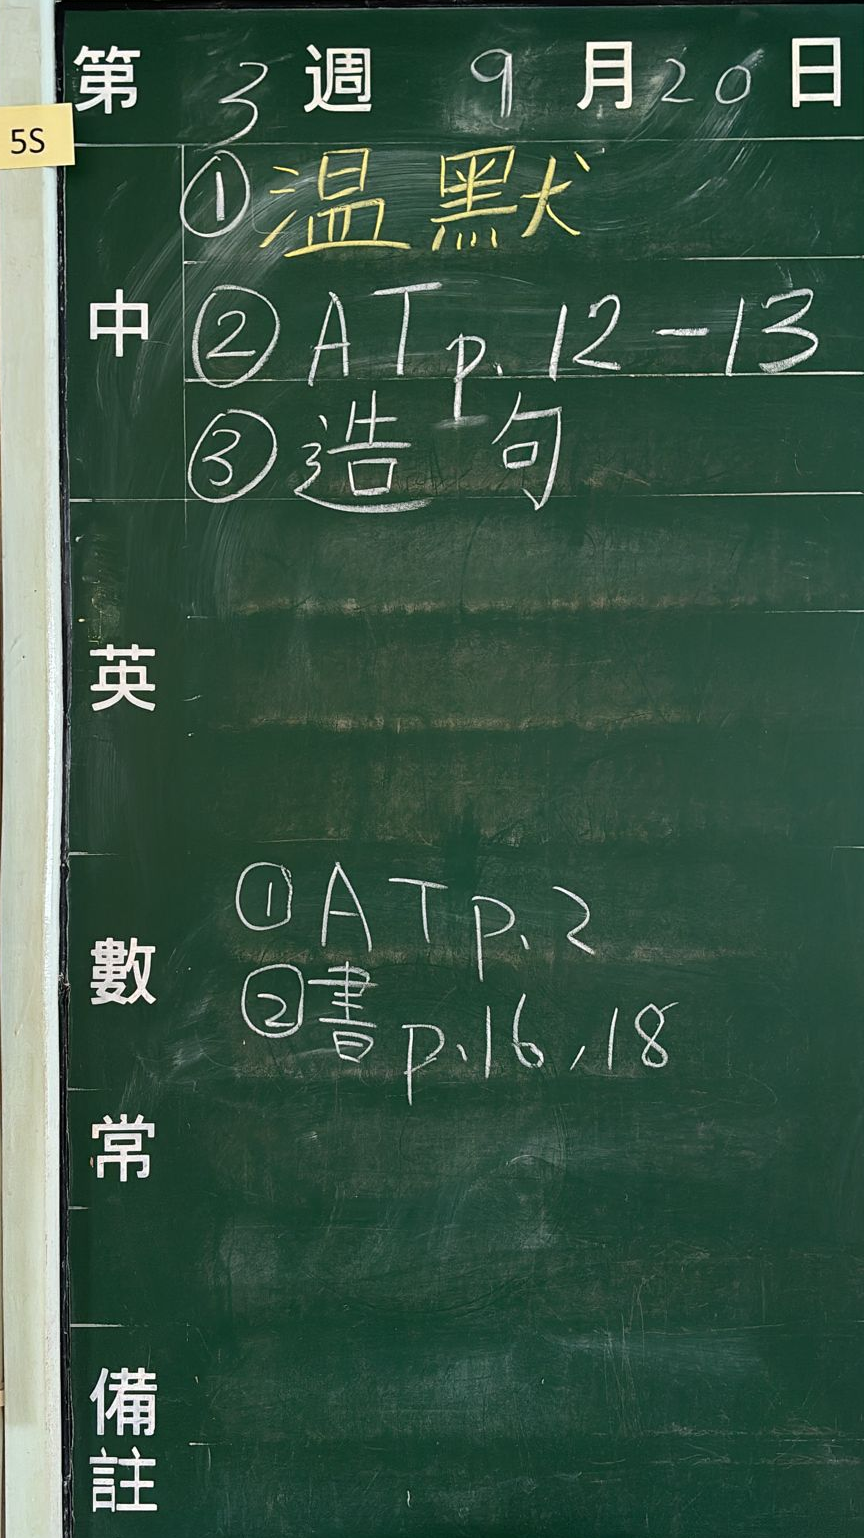 第 3 週 9 月 20 日
5S
中
① 温默
② AT p. 12-13
③ 造句
英
數
① AT p. 2
② 書 p. 16, 18
常
備註